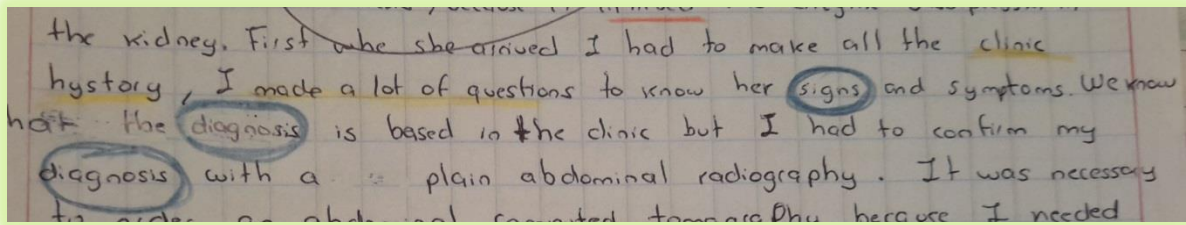 the kidney. First whe she arrived I had to make all the clinic
hystory, I made a lot of questions to know her signs and symptoms. We know
hat the diagnosis is based in the clinic but I had to confirm my
diagnosis with a plain abdominal radiography. It was necessary
computed tomography because I needed